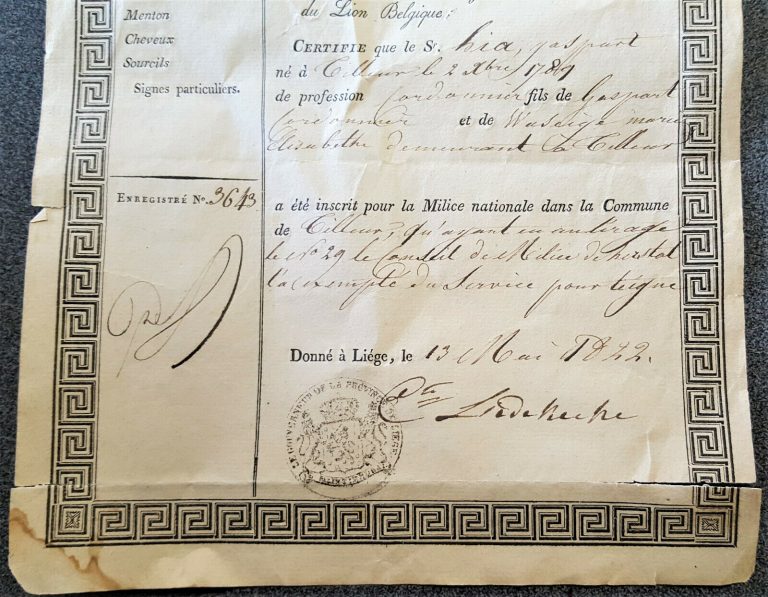 Menton
Cheveux
Sourcils
Signes particuliers.
ENREGISTRÉ No. 3643
du Lion Belgique;
CERTIFIE que le Sr. hia, gaspart
né à Tilleur le 2 Xbre 1789
de profession Cordonnier fils de Gaspart
Cordonnier et de Waseige marie
Elisabethe demeurant à Tilleur
a été inscrit pour la Milice nationale dans la Commune
de Tilleur, qu'ayant eu au tirage
le No 29 le Conseil de Milice de herstal
l'a exempté du Service pour teigne
Donné à Liége, le 13 Mai 1822.
Cte Liedekerke
LE GOUVERNEUR DE LA PROVINCE DE LIÈGE